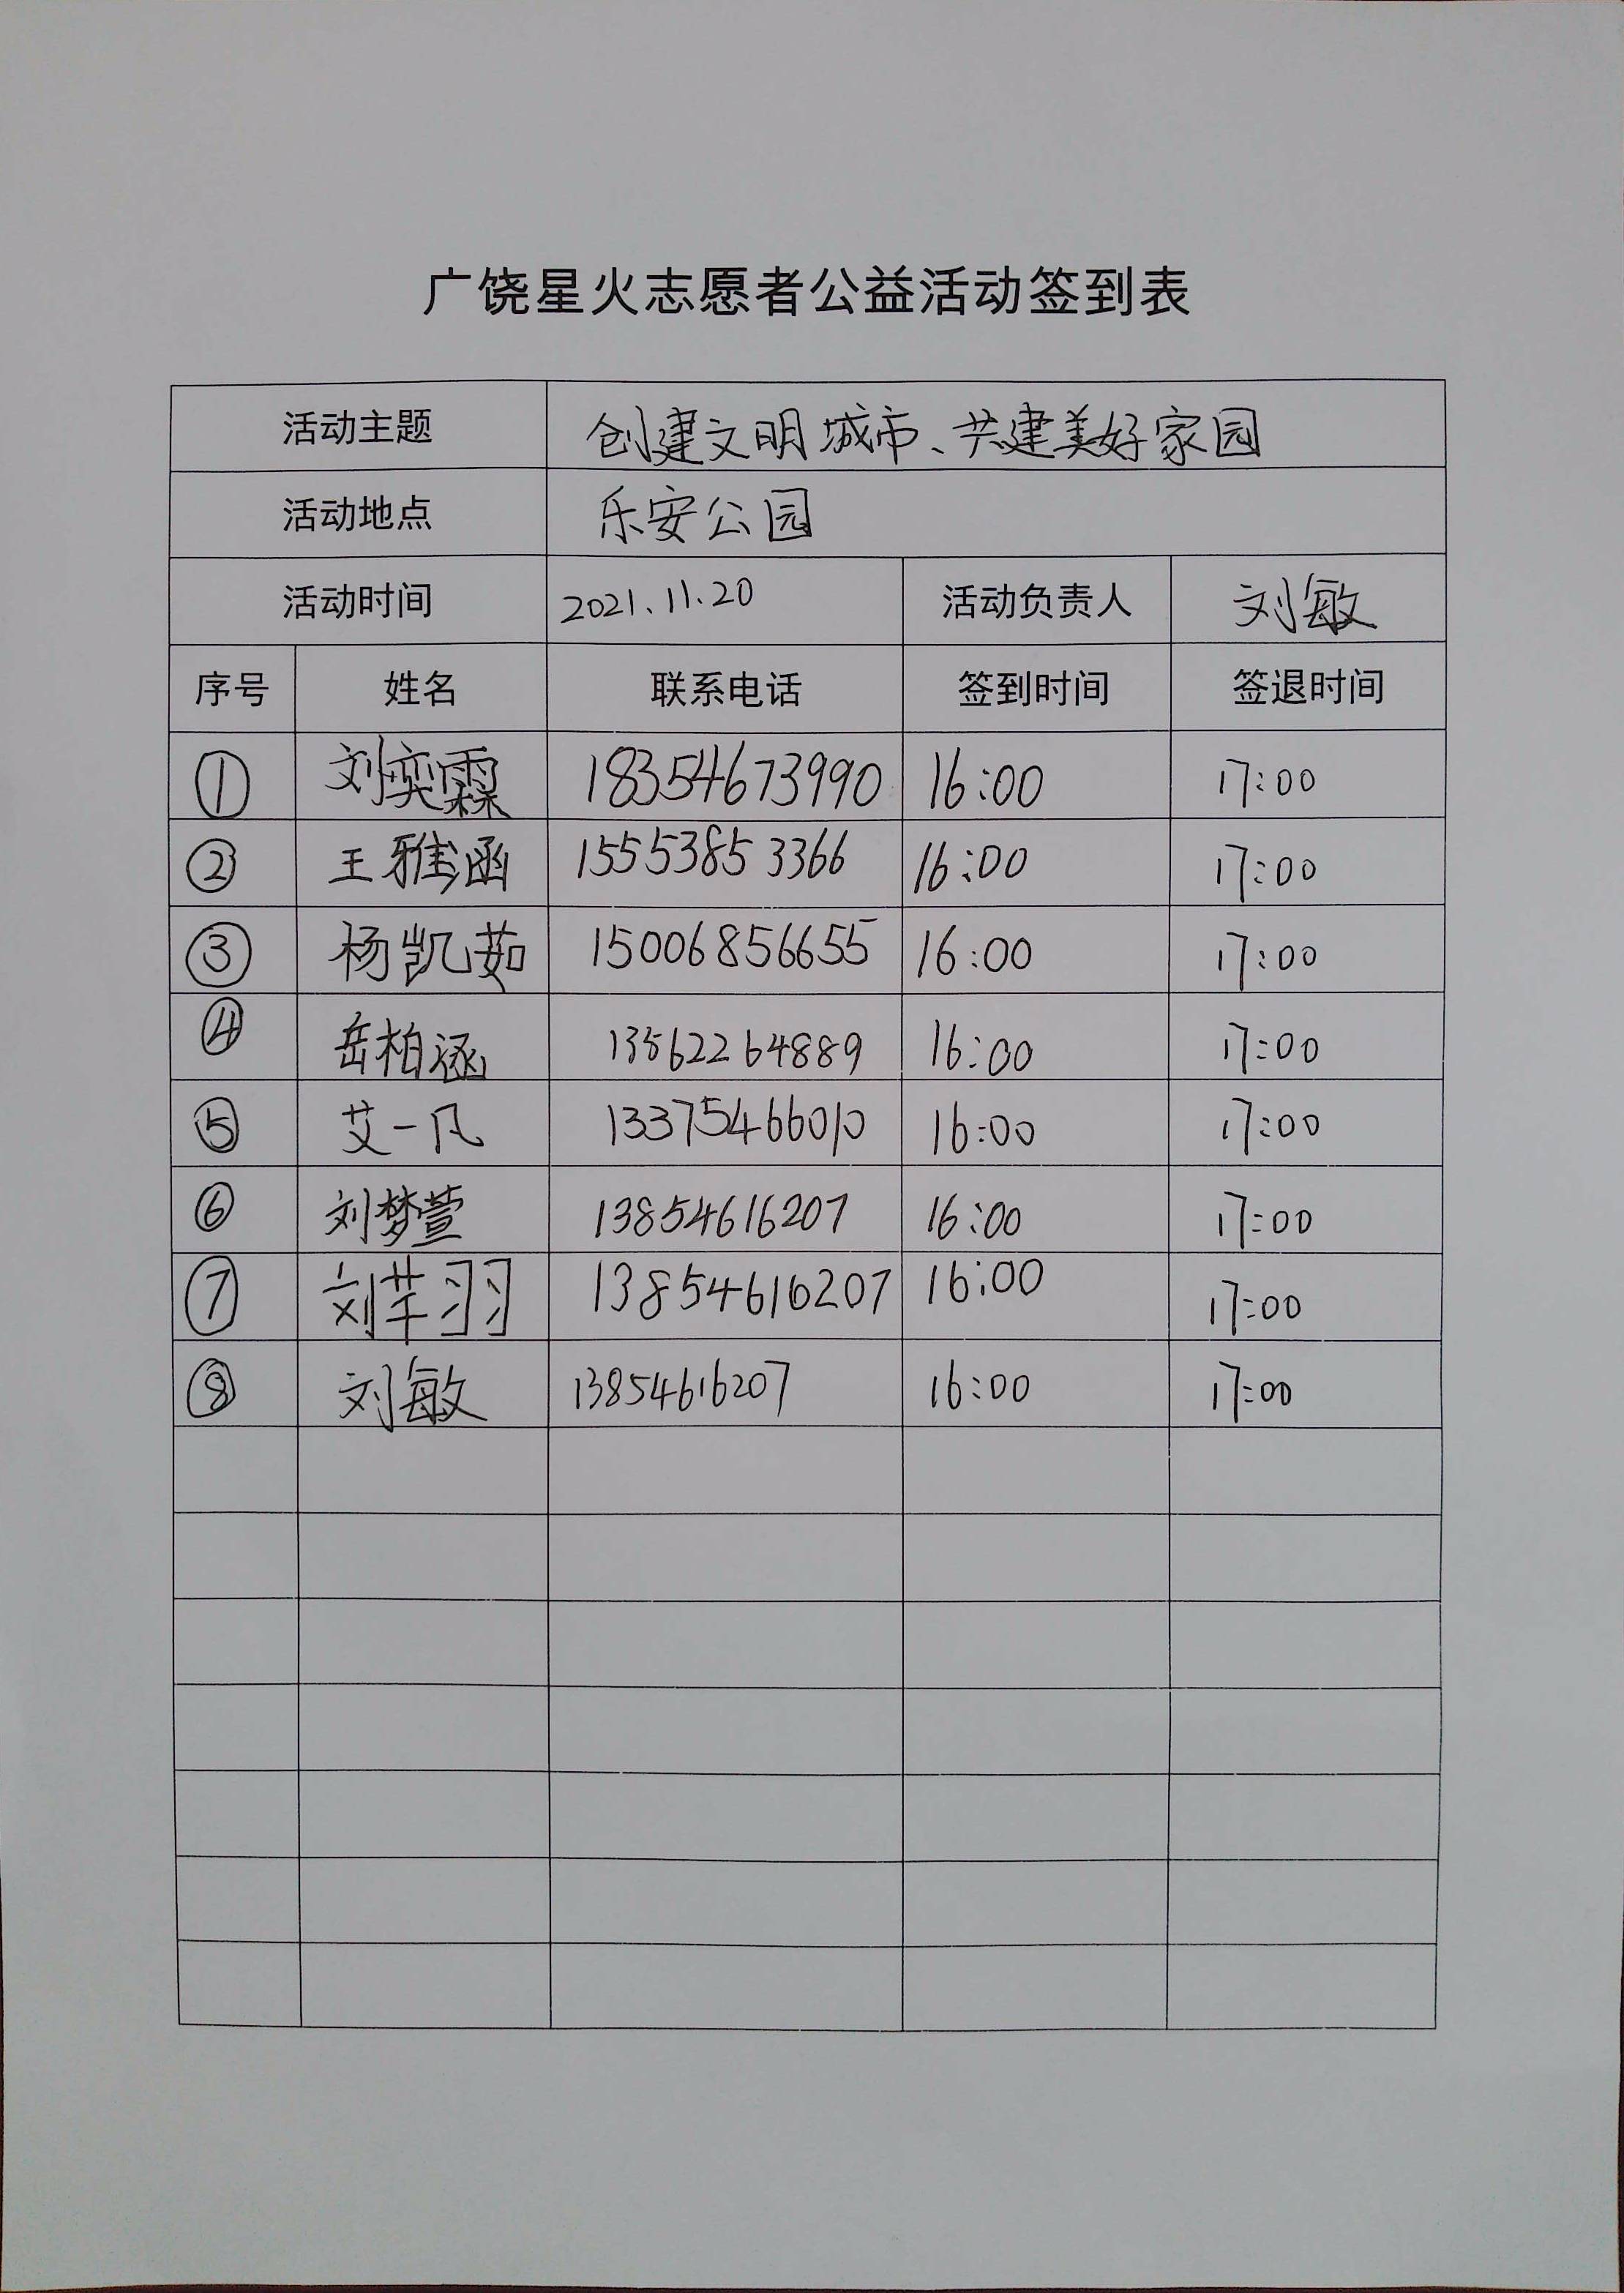 广饶星火志愿者公益活动签到表
活动主题 创建文明城市、共建美好家园
活动地点 乐安公园
活动时间 2021.11.20 活动负责人 刘敏
序号 姓名 联系电话 签到时间 签退时间
① 刘奕霖 18354673990 16:00 17:00
② 王雅涵 15553853366 16:00 17:00
③ 杨凯茹 15006856655 16:00 17:00
④ 岳柏涵 13562264889 16:00 17:00
⑤ 艾一凡 13375466010 16:00 17:00
⑥ 刘梦萱 13854616207 16:00 17:00
⑦ 刘芊羽 13854616207 16:00 17:00
⑧ 刘敏 13854616207 16:00 17:00